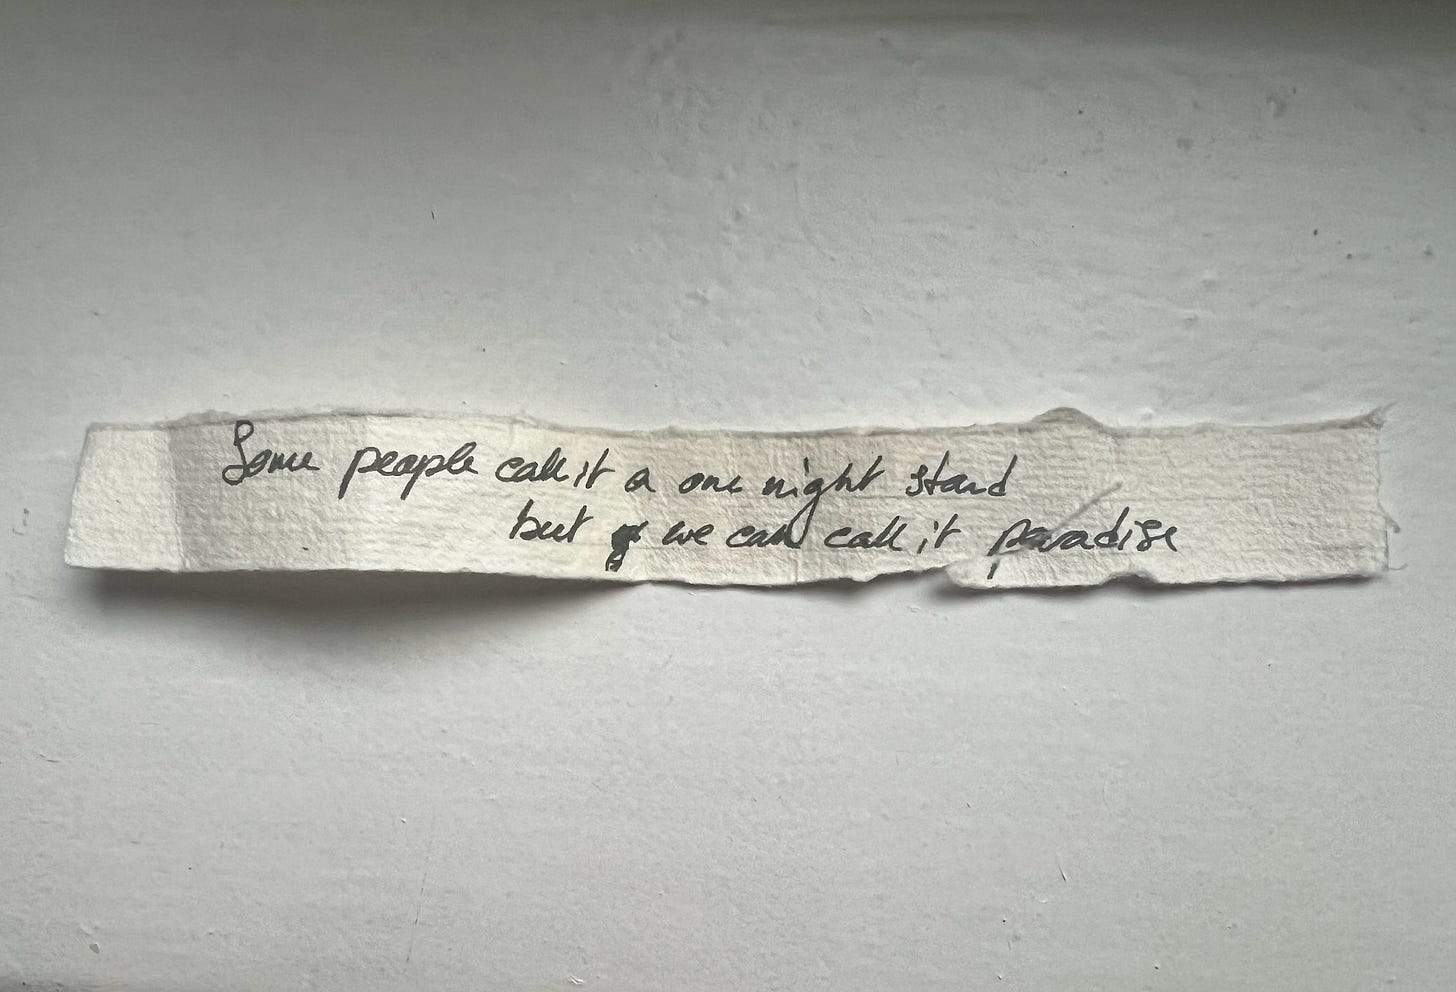 Some people call it a one night stand
but we can call it paradise